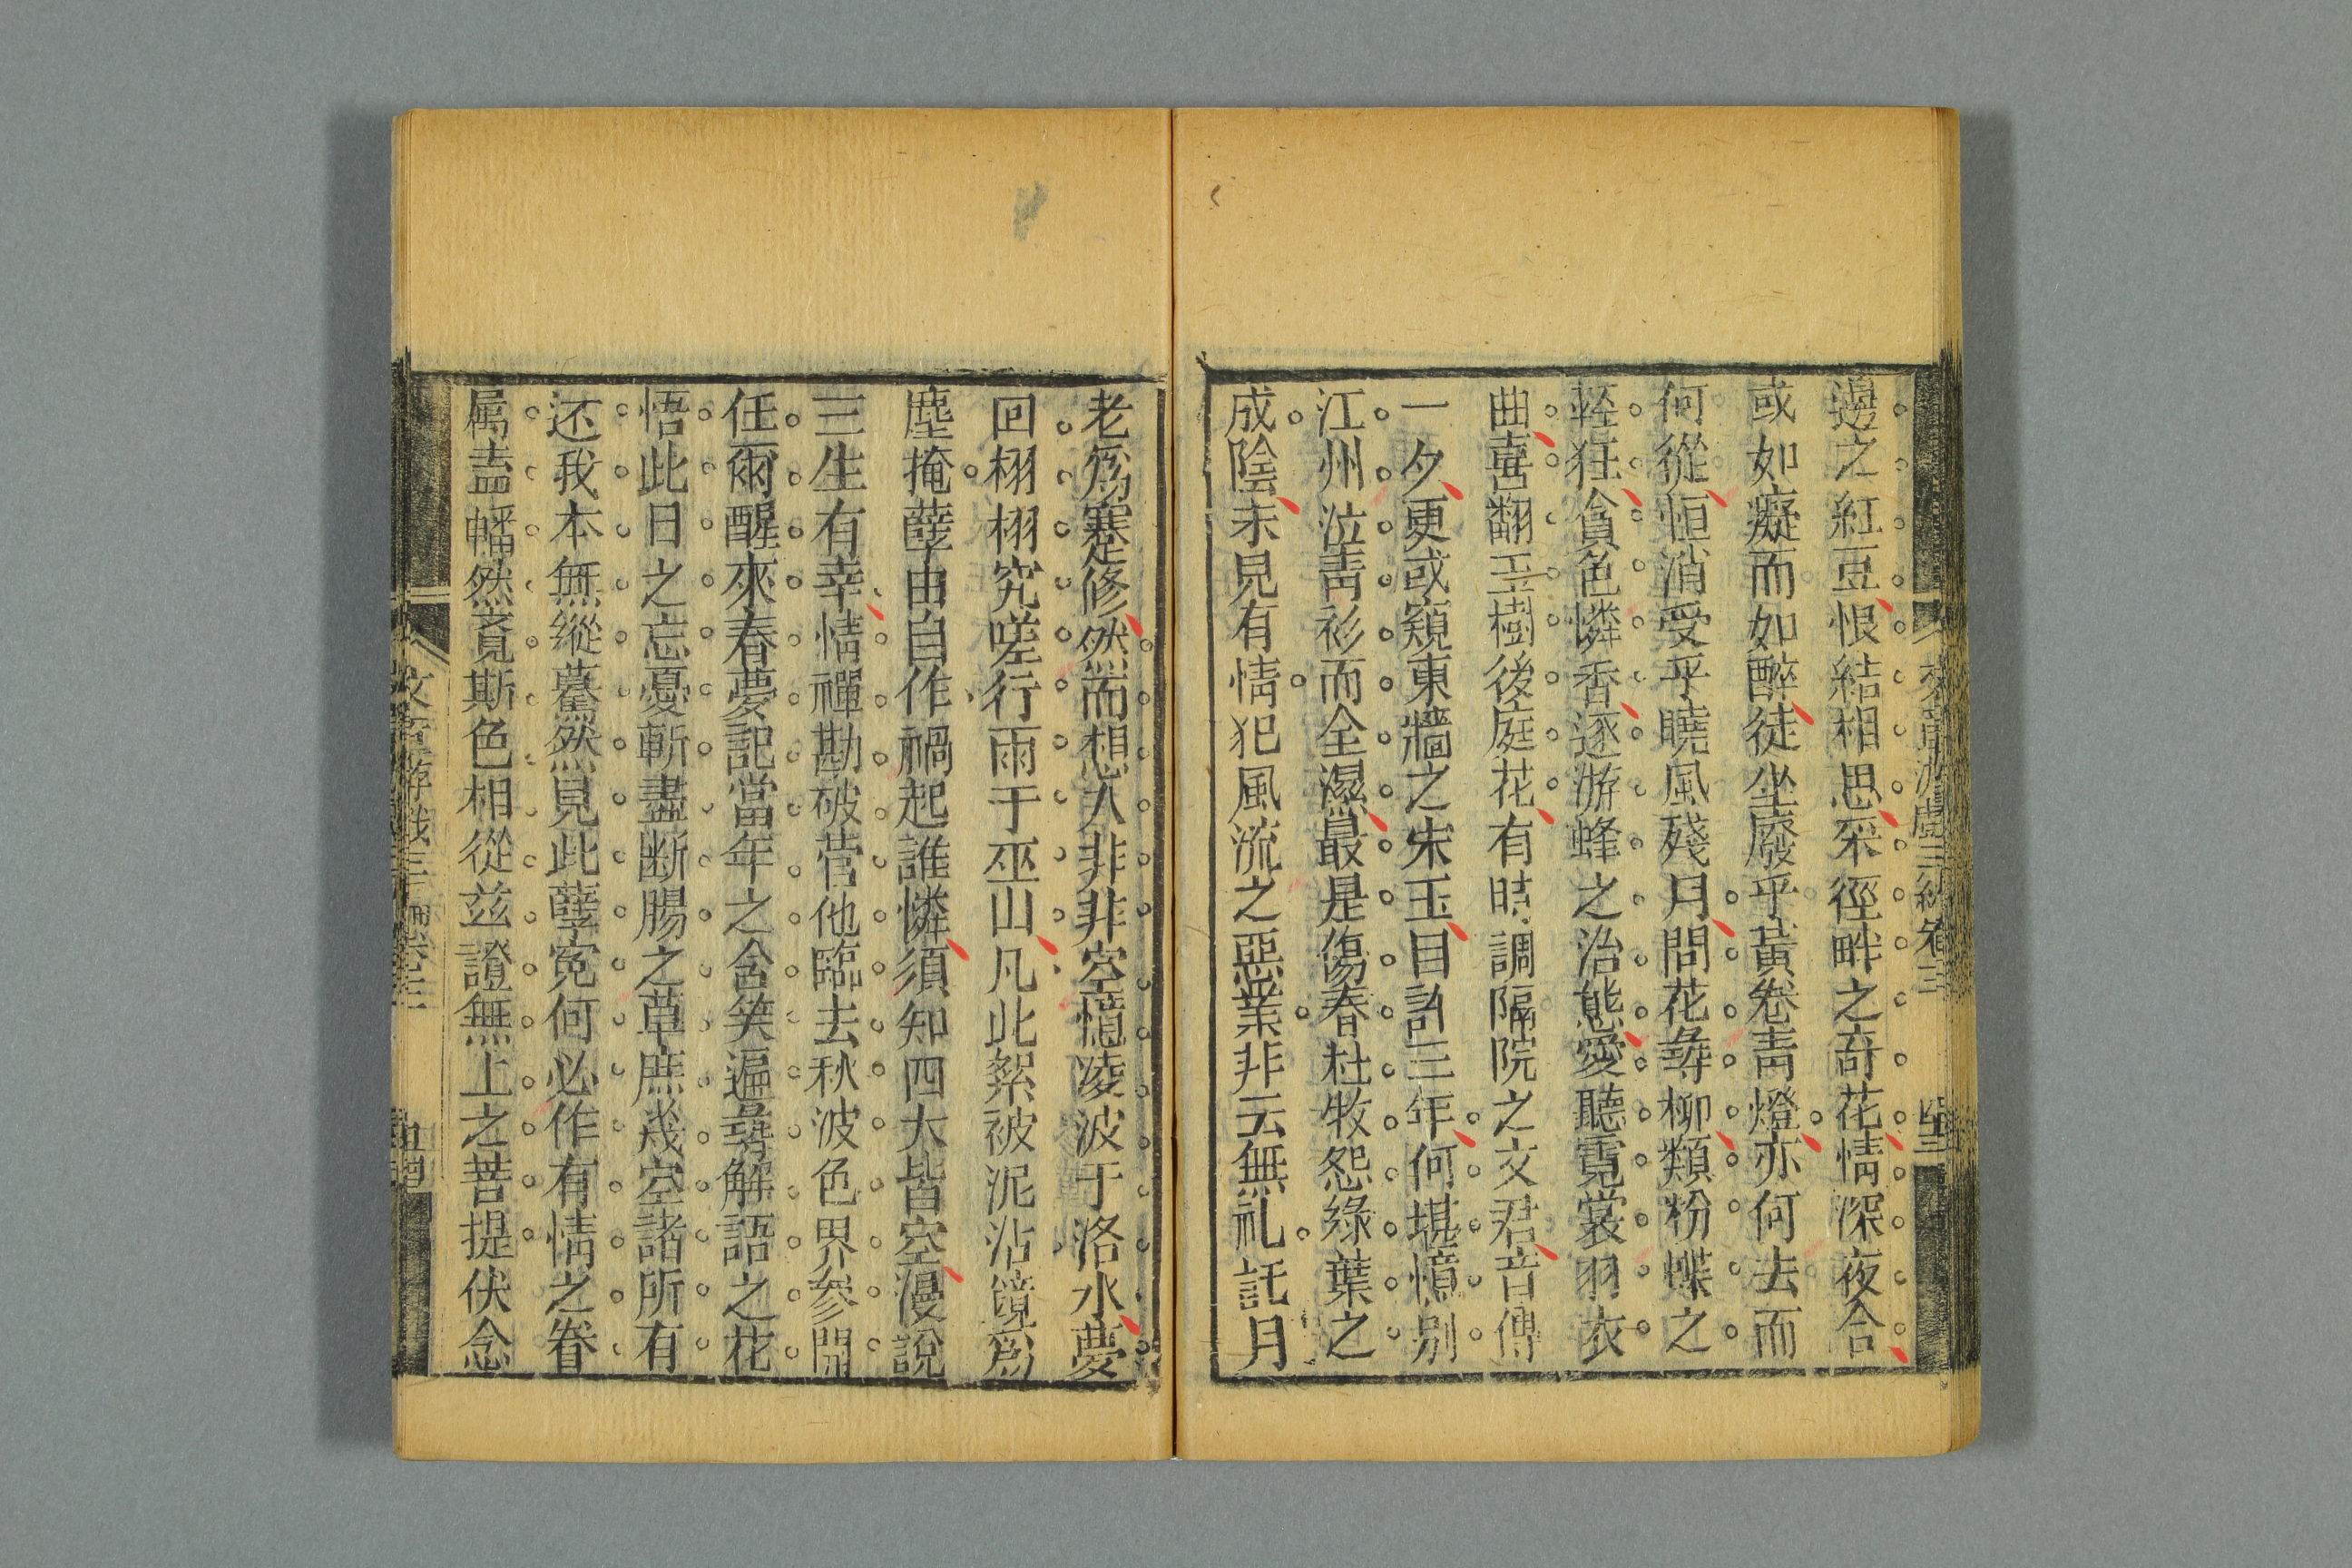 邊之紅豆恨結相思采徑畔之奇花情深夜合
或如癡而如醉徒坐廢乎黃卷青燈亦何去而
何從恒消受乎曉風殘月問花尋柳類粉蝶之
輕狂貪色憐香逐游蜂之冶態愛聽霓裳羽衣
曲喜翻玉樹後庭花有時調隔院之文君音傳
一夕更或窺東牆之宋玉目許三年何堪憶別
江州泣青衫而全濕最是傷春杜牧怨綠葉之
成陰未見有情犯風流之惡業非云無礼託月
老為蹇修然而想入非非空憶凌波于洛水夢
回栩栩究嗟行雨于巫山凡此絮被泥沾鏡為
塵掩孽由自作禍起誰憐須知四大皆空漫說
三生有幸情禪勘破菅他臨去秋波色界參開
任爾醒來春夢記當年之含笑遍尋解語之花
悟此日之忘憂斬盡断腸之草庶幾空諸所有
还我本無縱驀然見此孽冤何必作有情之眷
属盍幡然覔斯色相從兹證無上之菩提伏念
文章游戲三編卷三